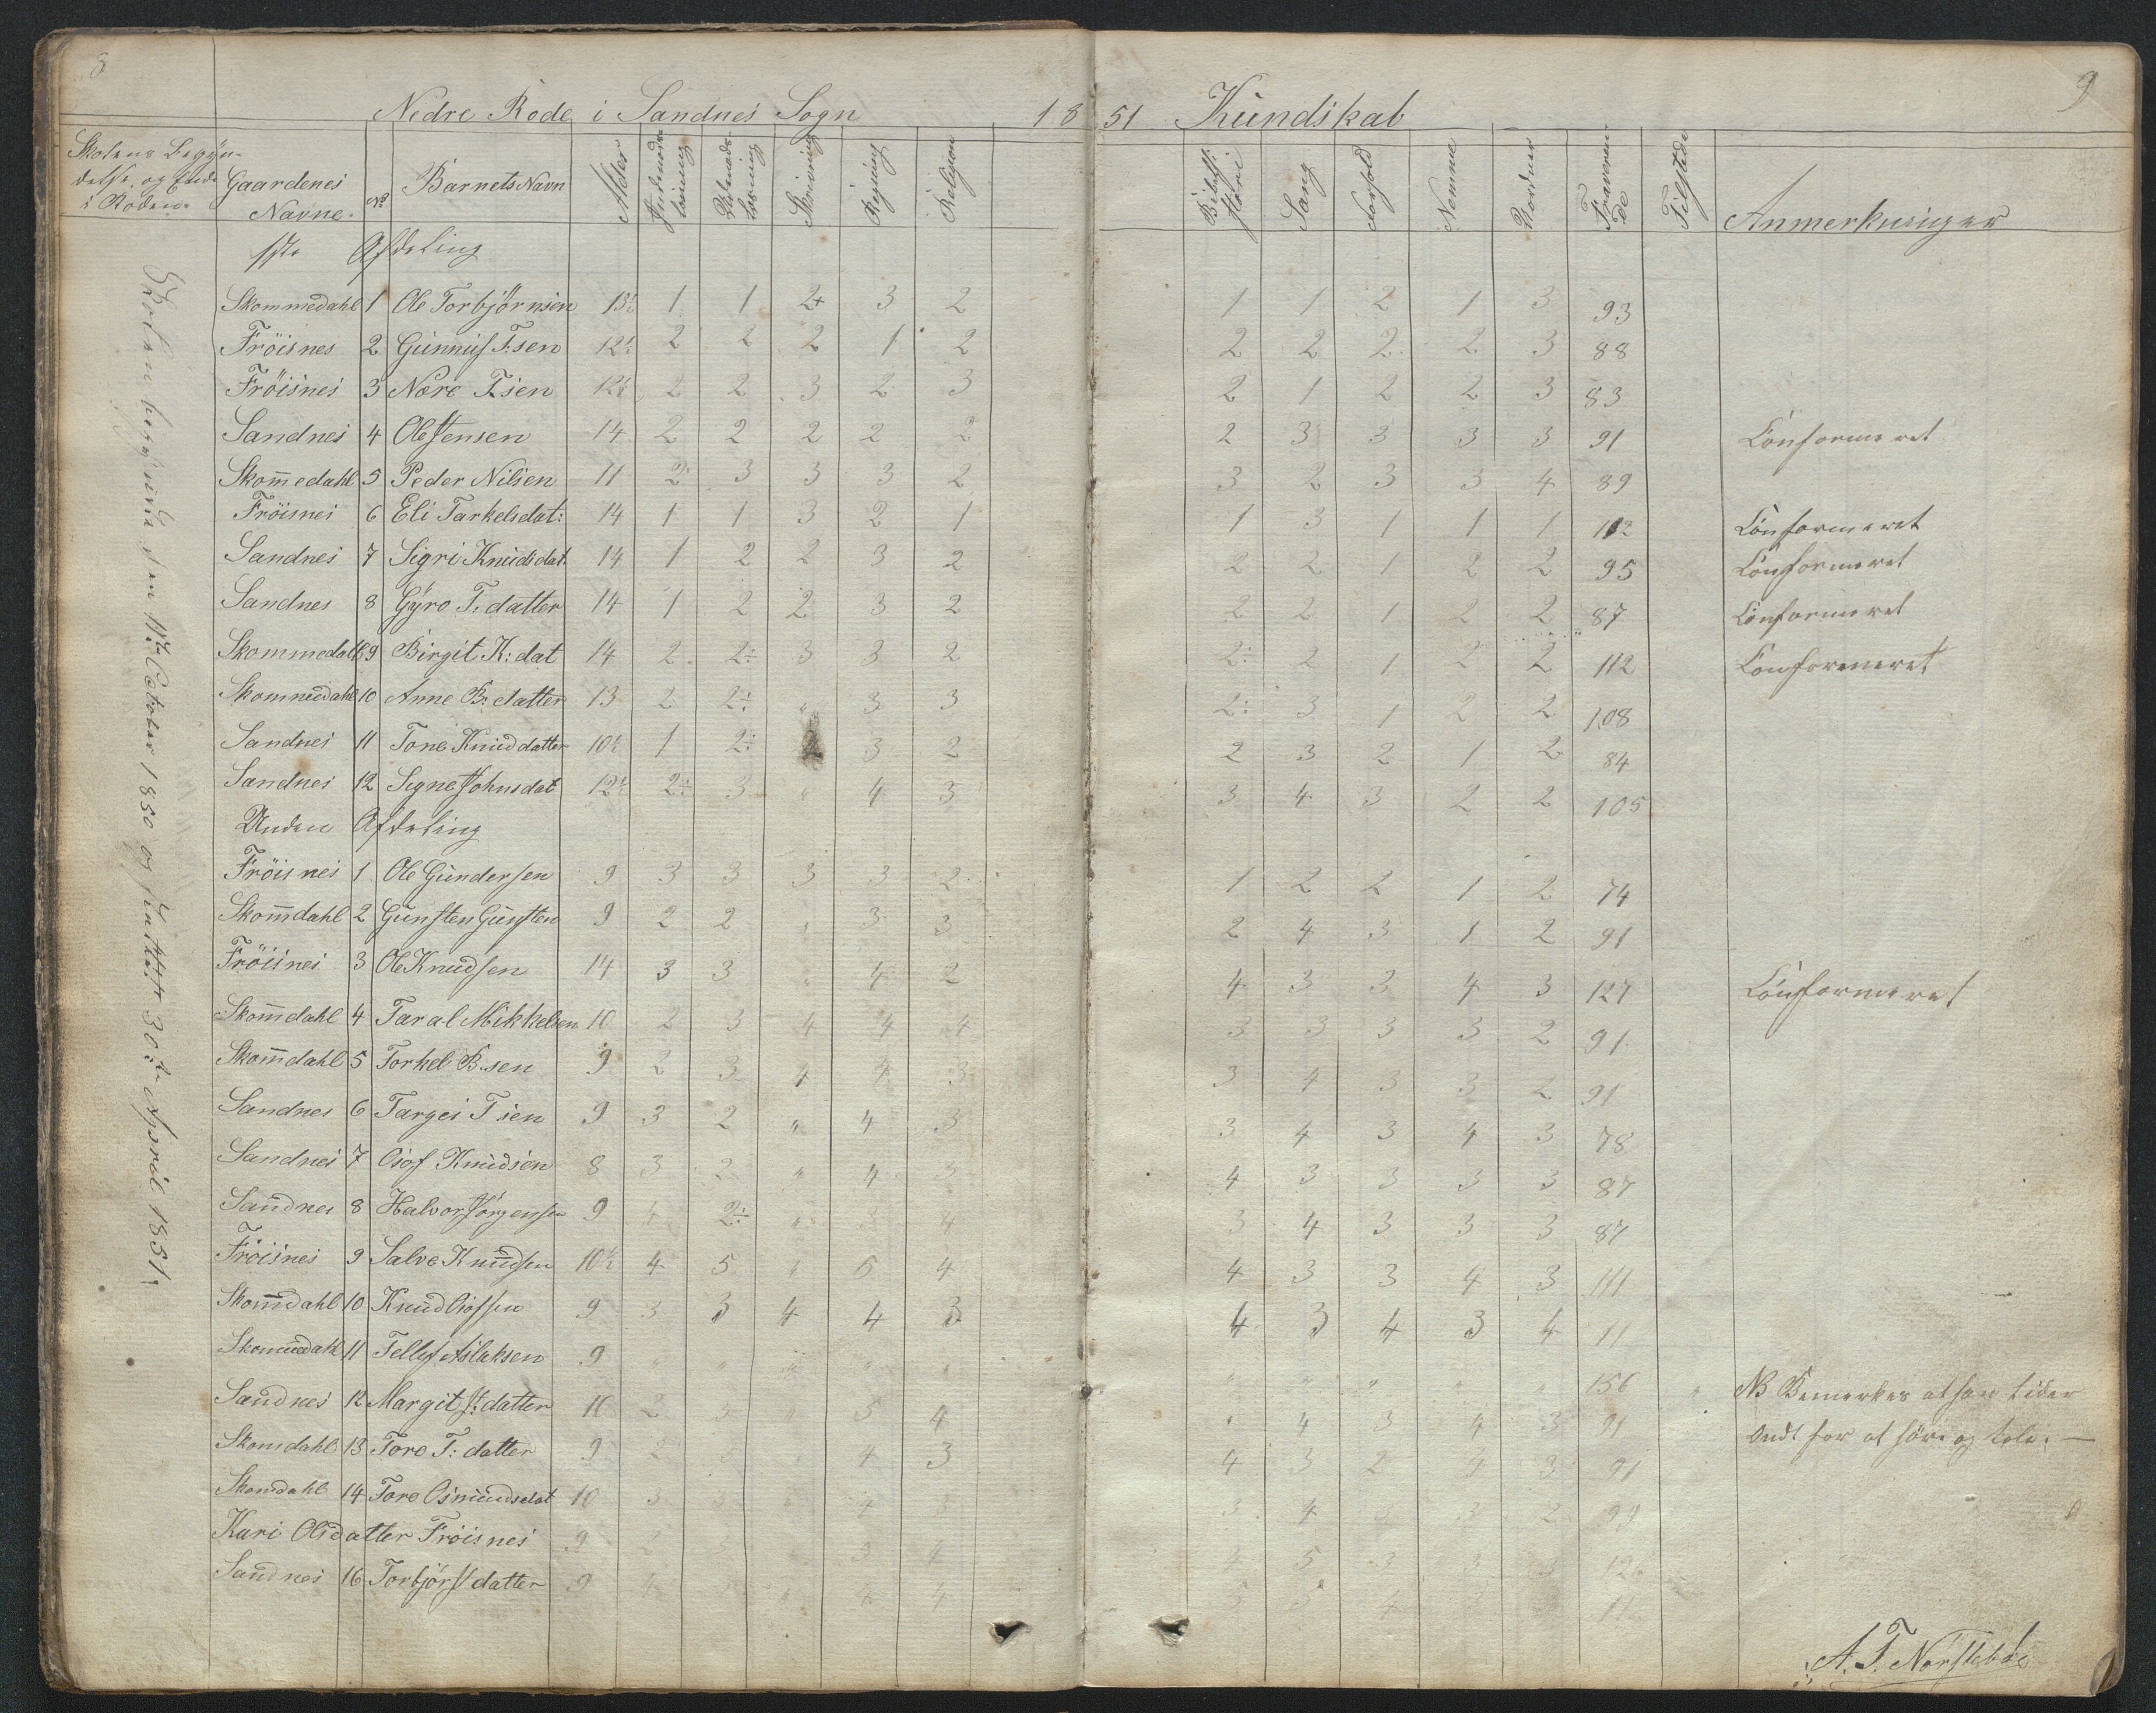 8
9
Nedre Rode i Sandnes Sogn 1851 Kundskab
Skolens Begyn-
delse og Ende
i Roden.
Gaardenes Navne. No Barnets Navn Alder Indenads læsning Udenads læsning Skrivning Regning Religion Bibelhistorie Sang Forhold Nemme Fraværende Tilstede Anmerkninger
Skolen begyndte den 11te October 1850 og sluttet 30te April 1851.
1ste Afdeling
Skommedahl 1 Ole Torbjörnsen 13½ 1 1 2+ 3 2 1 1 2 1 3 93
Fröisnes 2 Gunnuf T:sen 12½ 2 2 2 1 2 2 2 2 2 3 88
Fröisnes 3 Nore T.sen 12½ 2 2 3 2 3 2 1 2 2 3 83
Sandnes 4 Ole Stensen 14 2 2 2 2 2 2 3 3 3 3 91 Confirmeret
Skom̅edahl 5 Peder Nilsen 11 2 3 3 3 2 3 2 3 3 4 89
Fröisnes 6 Eli Tarkelsdat: 14 1 1 3 2 1 1 3 1 1 1 112 Confirmeret
Sandnes 7 Sigri Knudsdat. 14 1 2 2 3 2 2 2 1 2 2 95 Confirmeret
Sandnes 8 Gyro T. datter 14 1 2 2 3 2 2 2 1 2 2 87 Confirmeret
Skommedahl 9 Birgit K: dat 14 2 2÷ 3 3 2 2÷ 2 1 2 2 112 Confirmeret
Skommedahl 10 Anne B: datter 13 2 2÷ " 3 3 2÷ 3 1 2 2 108
Sandnes 11 Tone Knuddatter 10½ 1 2÷ 2 3 2 2 3 2 1 2 84
Sandnes 12 Signe Johnsdat 12½ 2÷ 3 " 4 3 3 4 3 2 2 105
Anden Afdeling
Fröisnes 1 Ole Gundersen 9 3 3 3 3 2 1 2 2 1 2 74
Skom̅dahl 2 Gunsten Gunsten 9 2 2 " 3 3 2 4 3 1 2 91
Fröisnes 3 Ole Knudsen 14 3 3 " 4 2 4 3 3 4 3 127 Confirmeret
Skom̅dahl 4 Taral Mikkelsen 10 2 3 4 4 4 3 3 3 3 2 91
Skom̅dahl 5 Torkel B.sen 9 2 3 4 4 3 3 4 3 3 2 91
Sandnes 6 Targei T sen 9 3 2 " 4 3 3 4 3 4 3 78
Sandnes 7 Osof Knudsen 8 3 2 " 4 3 4 3 3 3 3 87
Sandnes 8 Halvor Jörgensen 9 4 2÷ " 3 4 3 4 3 3 3 87
Fröisnes 9 Salve Knudsen 10½ 4 5 " 5 4 4 3 3 4 3 111
Skom̅dahl 10 Knud Osofsen 9 3 3 4 4 3 4 3 4 3 4 11
Skommedahl 11 Tellef Aslaksen 9 " " " " " " " " " " 156 " NB Bemerkes at han lider
Sandnes 12 Margit St: datter 10 2 3 " 5 4 " 4 3 4 3 91 Ondt for at höre og tale. —
Skomdahl 13 Tore T: datter 9 2 4 3 4 3 2 4 3 91
Skomdahl 14 Tore Osmundsdat 10 3 3 4 3 3 4 3 3 2 99
Kari Olsdatter Fröisnes 9 2 3 3 4 5 3 3 3 126
Sandnes 16 Torbjör St datter 9 4 4 5 5 4
A. T. Norstebde